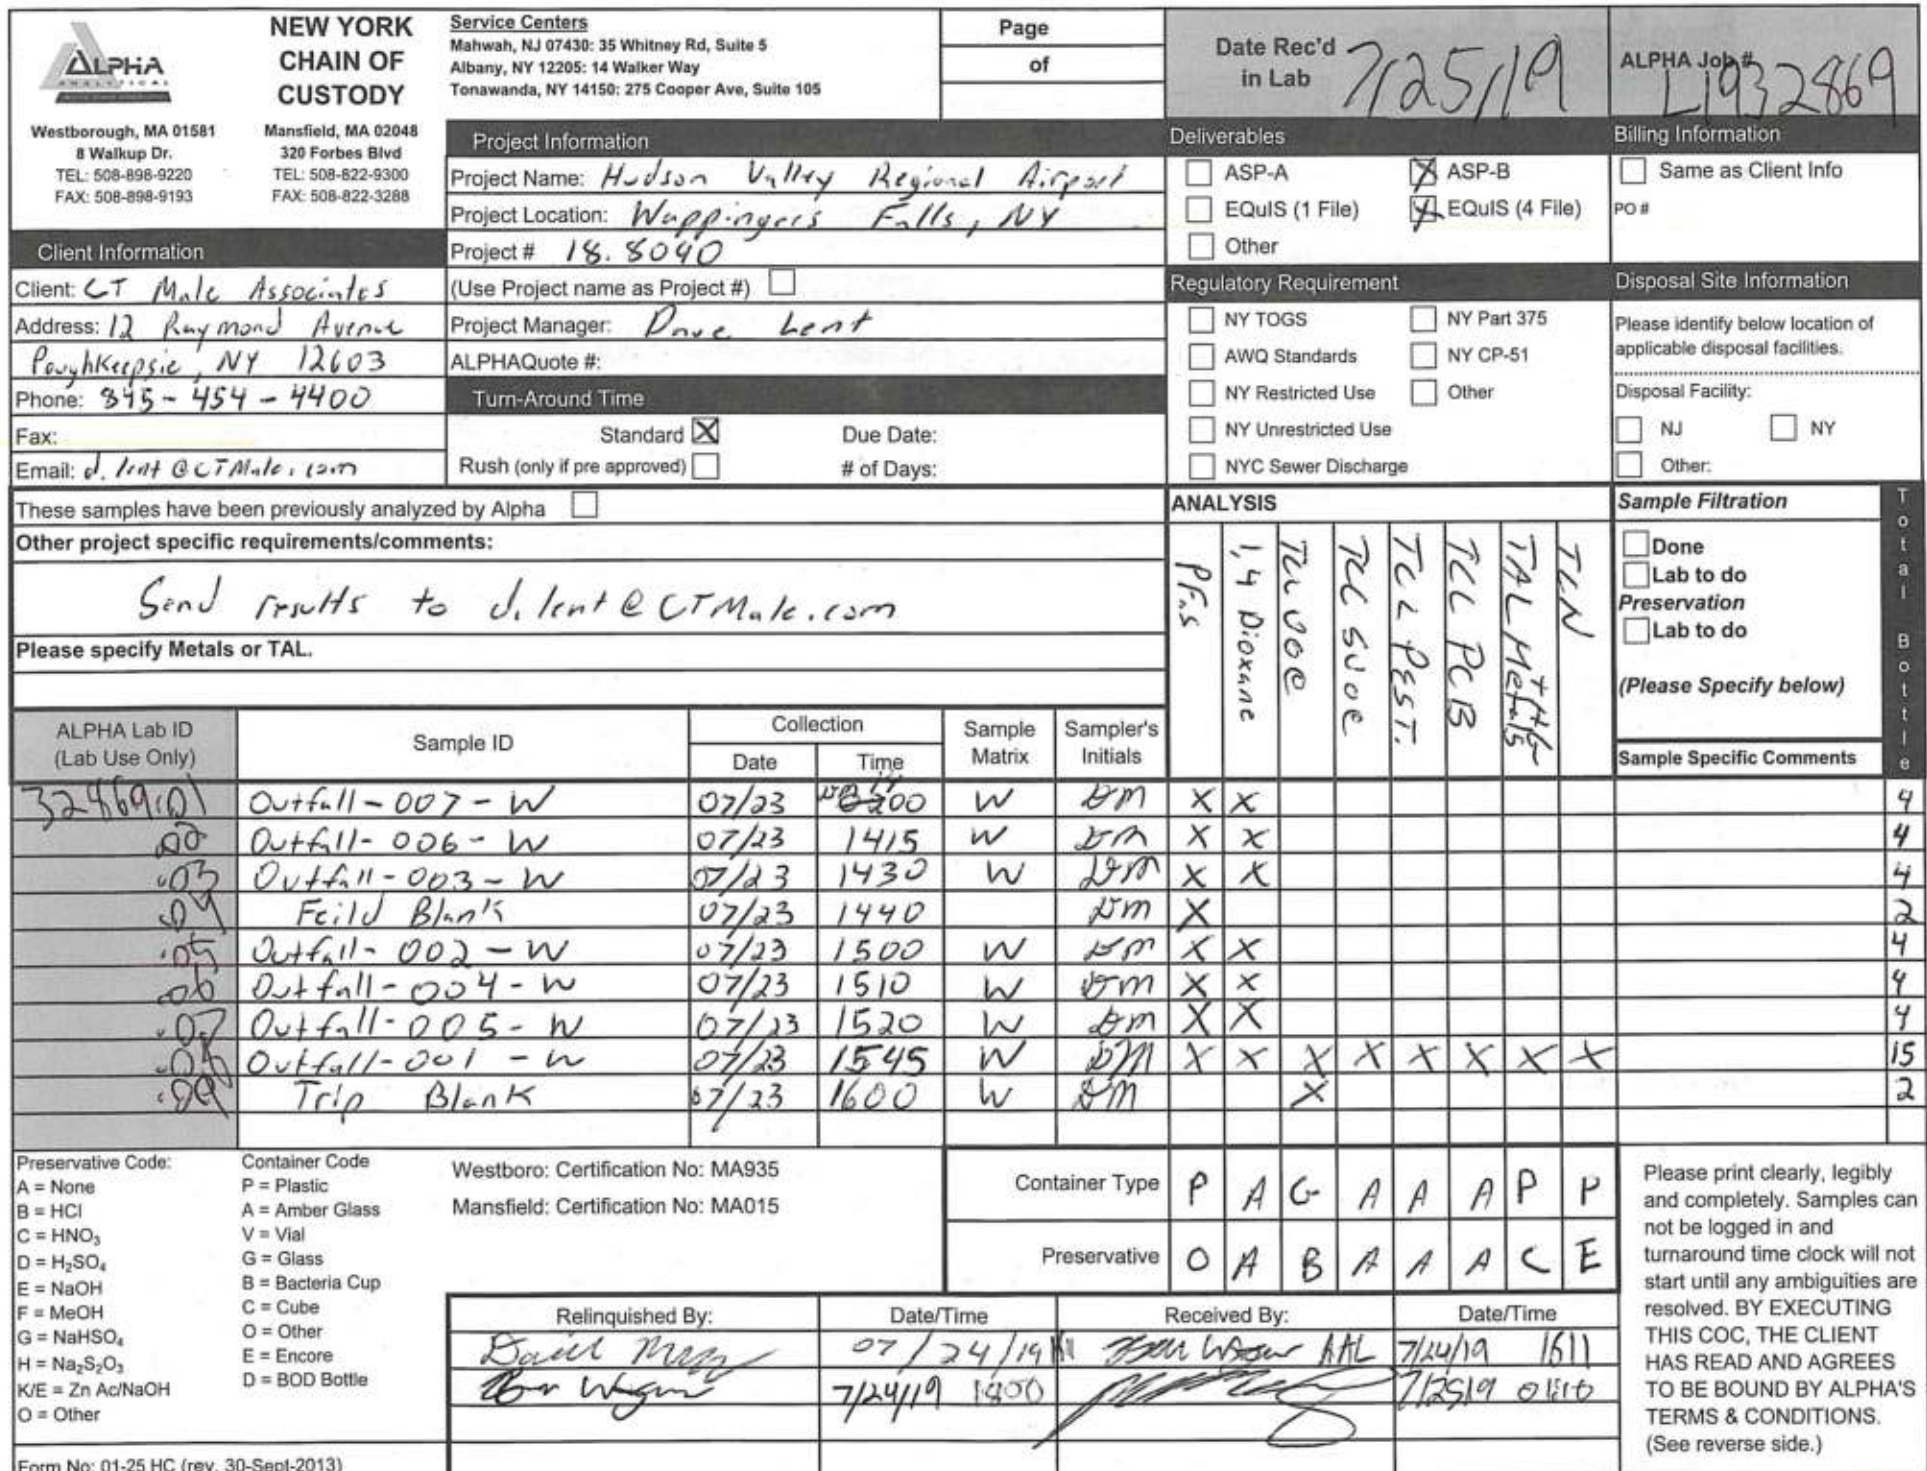 ALPHA
ANALYTICAL
NEW YORK
CHAIN OF
CUSTODY
Westborough, MA 01581
8 Walkup Dr.
TEL: 508-898-9220
FAX: 508-898-9193
Mansfield, MA 02048
320 Forbes Blvd
TEL: 508-822-9300
FAX: 508-822-3288
Service Centers
Mahwah, NJ 07430: 35 Whitney Rd, Suite 5
Albany, NY 12205: 14 Walker Way
Tonawanda, NY 14150: 275 Cooper Ave, Suite 105
Page
of
Date Rec'd in Lab 7/25/19
ALPHA Job # L1932869
Client Information
Client: CT Male Associates
Address: 12 Raymond Avenue
Poughkeepsie, NY 12603
Phone: 845-454-4400
Fax:
Email: d.lent@CTMale.com
Project Information
Project Name: Hudson Valley Regional Airport
Project Location: Wappingers Falls, NY
Project # 18.8040
(Use Project name as Project #)
Project Manager: Dave Lent
ALPHAQuote #:
Turn-Around Time
Standard X Due Date:
Rush (only if pre approved) # of Days:
Deliverables
ASP-A X ASP-B
EQuIS (1 File) X EQuIS (4 File)
Other
Regulatory Requirement
NY TOGS NY Part 375
AWQ Standards NY CP-51
NY Restricted Use Other
NY Unrestricted Use
NYC Sewer Discharge
Billing Information
Same as Client Info
PO #
Disposal Site Information
Please identify below location of
applicable disposal facilities.
Disposal Facility:
NJ NY
Other:
These samples have been previously analyzed by Alpha
Other project specific requirements/comments:
Send results to d.lent@CTMale.com
Please specify Metals or TAL.
ANALYSIS
PFas
1,4 Dioxane
TCL VOC
TCL SVOC
TCL PEST.
TCL PCB
TAL Metals + Hg
TCN
Sample Filtration
Done
Lab to do
Preservation
Lab to do
(Please Specify below)
Total Bottle
ALPHA Lab ID
(Lab Use Only)
Sample ID
Collection
Date Time
Sample Matrix
Sampler's Initials
Sample Specific Comments
32869.01 Outfall-007-W 07/23 1400 W DM X X 4
.02 Outfall-006-W 07/23 1415 W DM X X 4
.03 Outfall-003-W 07/23 1430 W DM X X 4
.04 Feild Blank 07/23 1440 DM X 2
.05 Outfall-002-W 07/23 1500 W DM X X 4
.06 Outfall-004-W 07/23 1510 W DM X X 4
.07 Outfall-005-W 07/23 1520 W DM X X 4
.08 Outfall-001-W 07/23 1545 W DM X X X X X X X X 15
.09 Trip Blank 07/23 1600 W DM X 2
Preservative Code:
A = None
B = HCl
C = HNO₃
D = H₂SO₄
E = NaOH
F = MeOH
G = NaHSO₄
H = Na₂S₂O₃
K/E = Zn Ac/NaOH
O = Other
Container Code
P = Plastic
A = Amber Glass
V = Vial
G = Glass
B = Bacteria Cup
C = Cube
O = Other
E = Encore
D = BOD Bottle
Westboro: Certification No: MA935
Mansfield: Certification No: MA015
Container Type P A G A A A P P
Preservative O A B A A A C E
Relinquished By: Date/Time Received By: Date/Time
07/24/19 AAL 7/24/19 1611
7/24/19 1800 7/25/19
Please print clearly, legibly
and completely. Samples can
not be logged in and
turnaround time clock will not
start until any ambiguities are
resolved. BY EXECUTING
THIS COC, THE CLIENT
HAS READ AND AGREES
TO BE BOUND BY ALPHA'S
TERMS & CONDITIONS.
(See reverse side.)
Form No: 01-25 HC (rev. 30-Sept-2013)